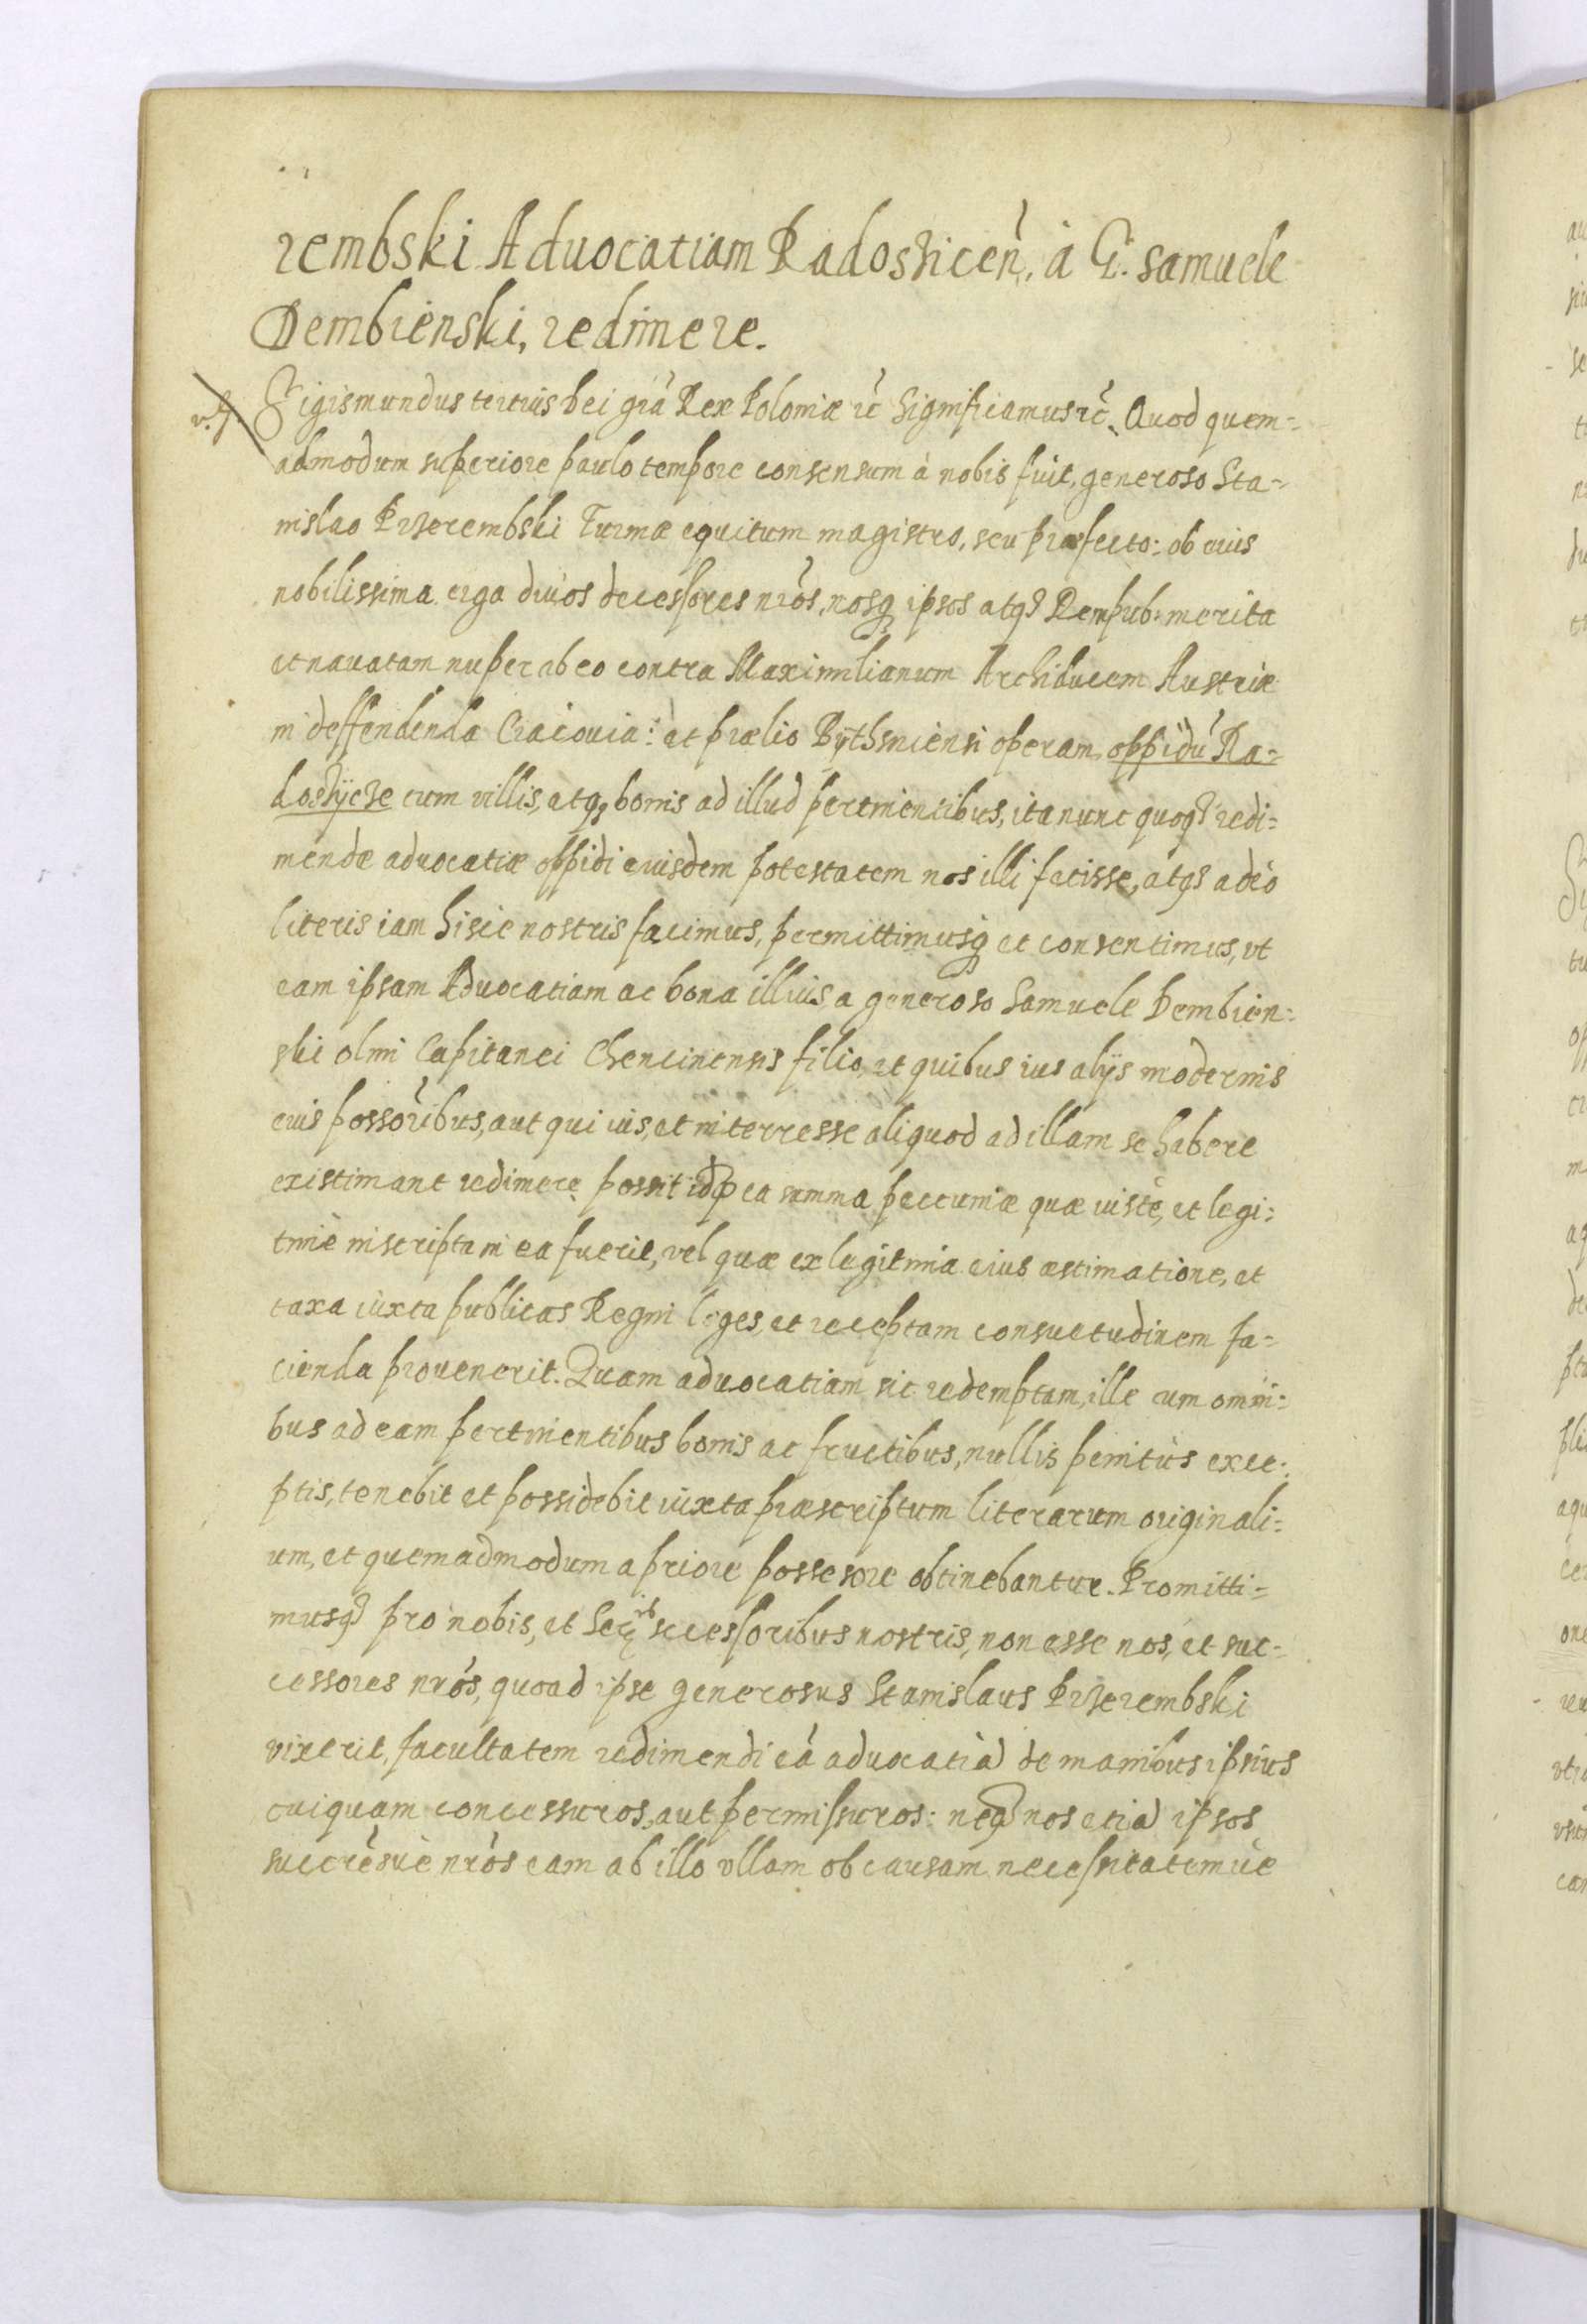 rembski Aduocatiam Radoszicen̄. à G. Samuele
Dembienski, redimere.
Sigismundus tertius Dei grã Rex Poloniæ rc̃ Significamus rc̃. Quod quem=
admodum superiore paulo tempore consensum à nobis fuit, generoso Sta=
nislao Przerembski Turmæ equitum magistro, seu præfecto: ob eius
nobilissima erga diuos decessores nr̃os, nosq ipsos atq Rempub: merita
et nauatam nuper ab eo contra Maximilianum Archiducem Austriæ
in deffendenda Cracouia: et prælio Bythsniensi operam, oppidũ Ra=
doszÿcze cum villis, atq bonis ad illud pertinentibus, ita nunc quoq redi=
mendæ aduocatiæ oppidi eiusdem potestatem nos illi fecisse, atq adeò
literis iam hisce nostris facimus, permittimusq et consentimus, vt
eam ipsam Aduocatiam ac bona illius, a generoso Samuele Dembien=
ski olim Capitanei Chencinensis filio, et quibusuis alijs modernis
eius possorĩbus, aut qui ius, et interresse aliquod ad illam se habere
existimant redimere possit idq ea summa peccuniæ quæ iustè, et legi=
timè inscripta in ea fuerit, vel quæ ex legitimia eius æstimatione, et
taxa iuxta publicas Regni leges, et receptam consuetudinem fa=
cienda prouenerit. Quam aduocatiam sic redemptam, ille cum omni=
bus ad eam pertinentibus bonis ac fructibus, nullis penitùs exce=
ptis, tenebit et possidebit iuxta præscriptum literarum originali=
um, et quemadmodum a priore possesore obtinebantur. Promitti=
musq pro nobis, et Ser. ib sccessoribus nostris, non esse nos, et suc=
cessores nrõs, quoad ipse generosus Stanislaus Przerembski
vixerit, facultatem redimendi eã aduocatiã de manibus ipsius
cuiquam concessuros, aut permissuros: neq nos etiã ipsos
succrẽsuè nrõs eam ab illo vllam ob causam necessitatemuè